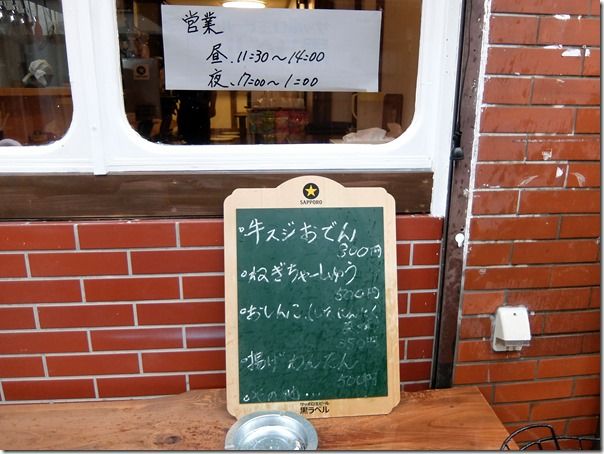 営業
昼、11:30〜14:00
夜、17:00〜1:00
SAPPORO
牛スジおでん
300円
ねぎちゃーしゅう
500円
おしんこ
350円
揚げわんたん
500円
その他
サッポロ生ビール
黒ラベル